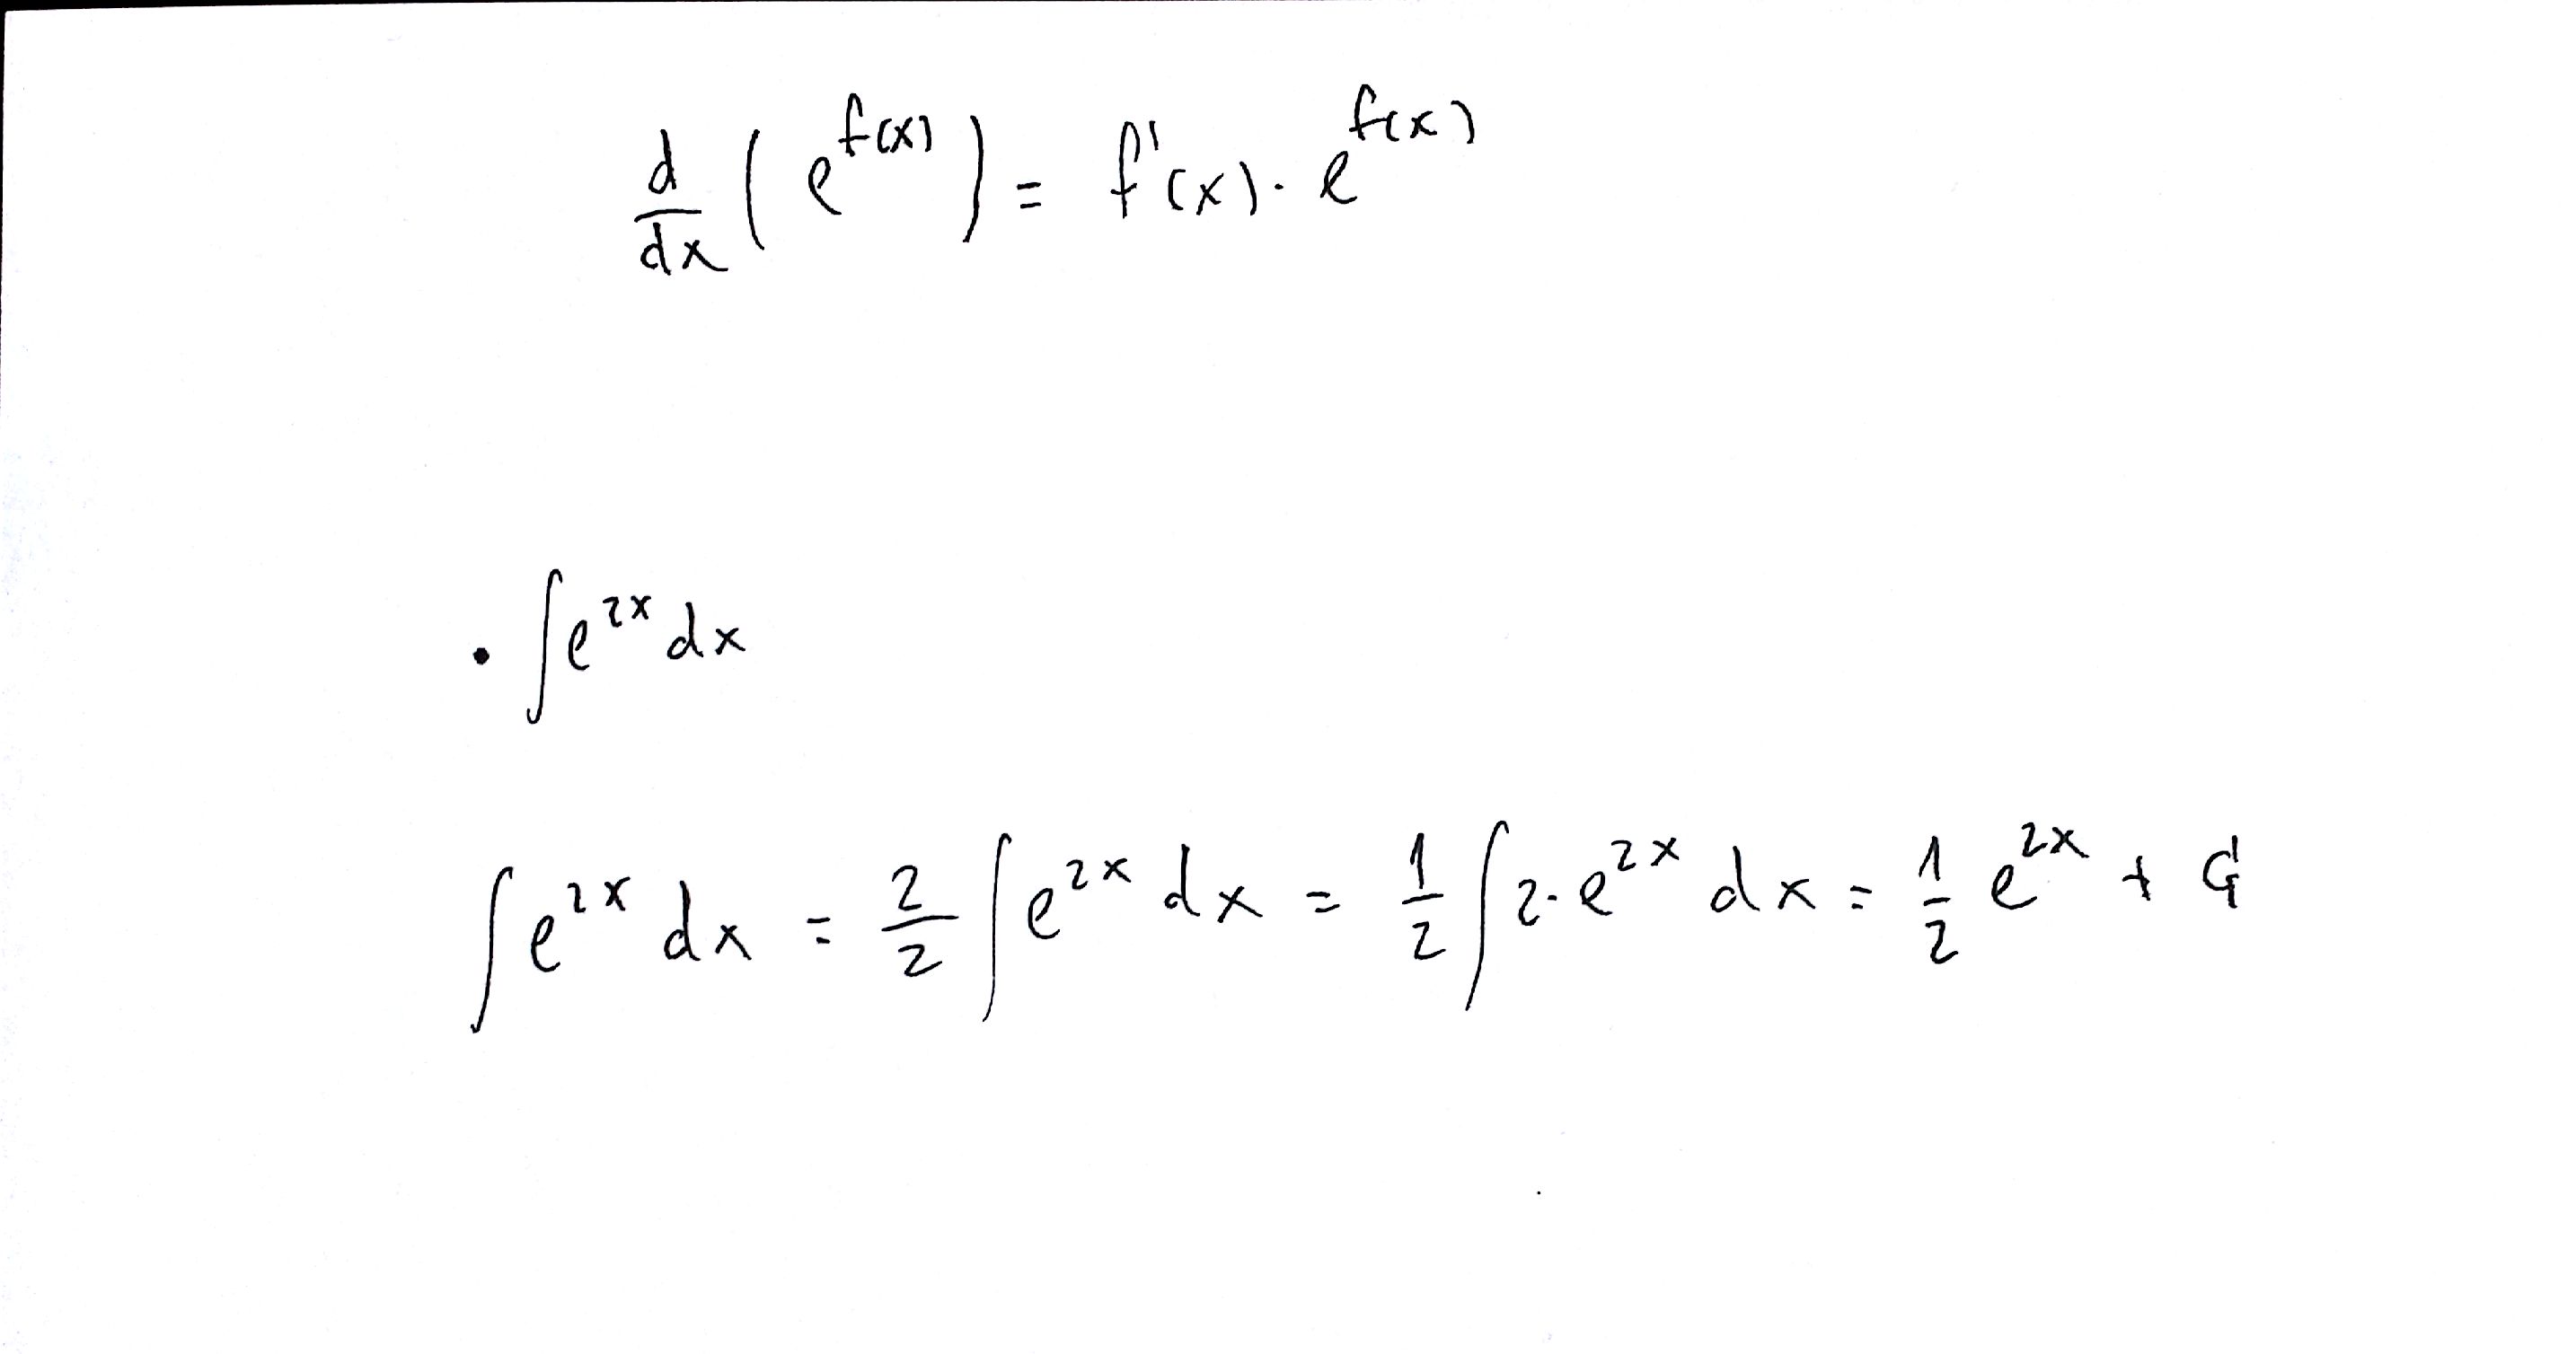 d/dx (e^f(x)) = f'(x) · e^f(x)
• ∫e^2x dx
∫e^2x dx = 2/2 ∫e^2x dx = 1/2 ∫2·e^2x dx = 1/2 e^2x + C